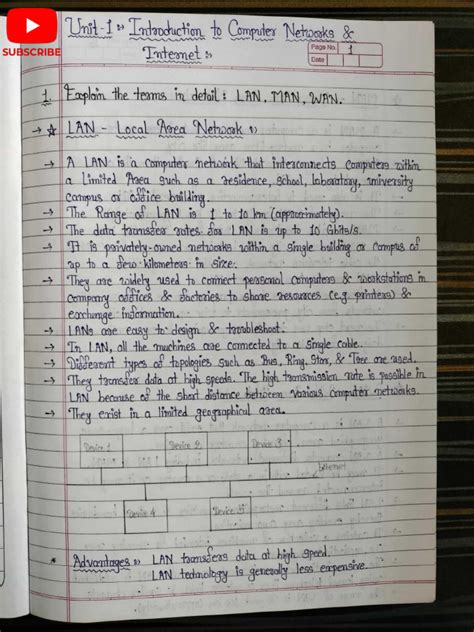 SUBSCRIBE
Unit-1 :» Introduction to Computer Networks &
Internet :»
Page No. 1
Date
1. Explain the terms in detail : LAN, MAN, WAN.
→ ☆ LAN - Local Area Network :»
→ A LAN is a computer network that interconnects computers within
a Limited Area such as a residence, school, laboratory, university
campus or office building.
→ The Range of LAN is 1 to 10 km (approximately).
→ The data transfer rates for LAN is up to 10 Gbits/s.
→ It is privately-owned networks within a single building or campus of
up to a few kilometers in size.
→ They are widely used to connect personal computers & workstations in
company offices & factories to share resources (e.g. printers) &
exchange information.
→ LANs are easy to design & troubleshoot.
→ In LAN, all the machines are connected to a single cable.
→ Different types of topologies such as Bus, Ring, Star, & Tree are used.
→ They transfer data at high speeds. The high transmission rate is possible in
LAN because of the short distance between various computer networks.
→ They exist in a limited geographical area.
Device 1 Device 2 Device 3
Ethernet
Device 4 Device 5
* Advantages :» LAN transfers data at high speed.
LAN technology is generally less expensive.